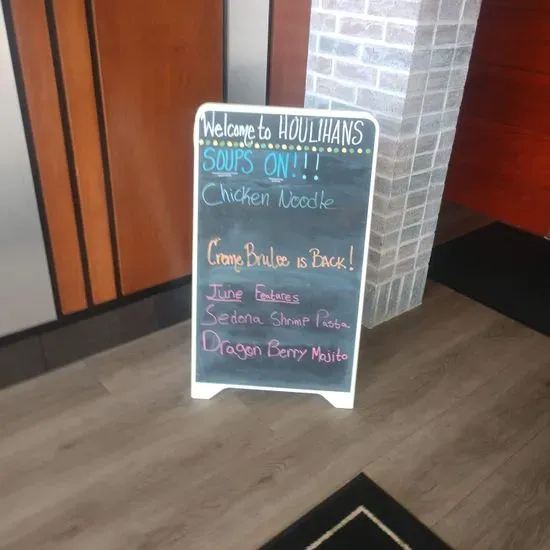 Welcome to HOULIHANS
SOUPS ON!!!
Chicken Noodle
Creme Brulee is BACK!
June Features
Sedona Shrimp Pasta
Dragon Berry Mojito